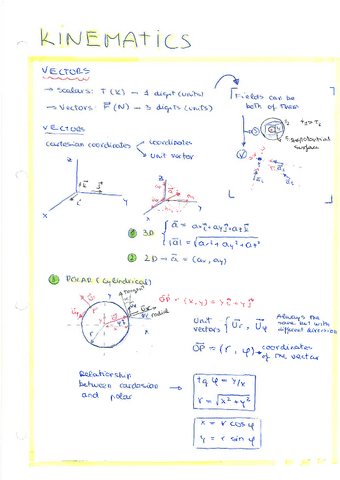 KINEMATICS
VECTORS
→ Scalars: T (K) — 1 digit (units)
→ Vectors: F⃗ (N) — 3 digits (units)
Fields can be
both of them
surface
VECTORS
Cartesian coordinates
coordinates
unit vector
z
y
x
① 3D
|a⃗| =
② 2D → a⃗ = (ax, ay)
POLAR (cylindrical)
radial
OP⃗ = (x, y) =
Unit
vectors { u⃗r, u⃗φ
Always the
same but with
different direction
OP⃗ = (r, φ) → coordinates
of the vector
Relationship
between cartesian
and polar
tg φ = y/x
r = √x² + y²
x = r cos φ
y = r sin φ